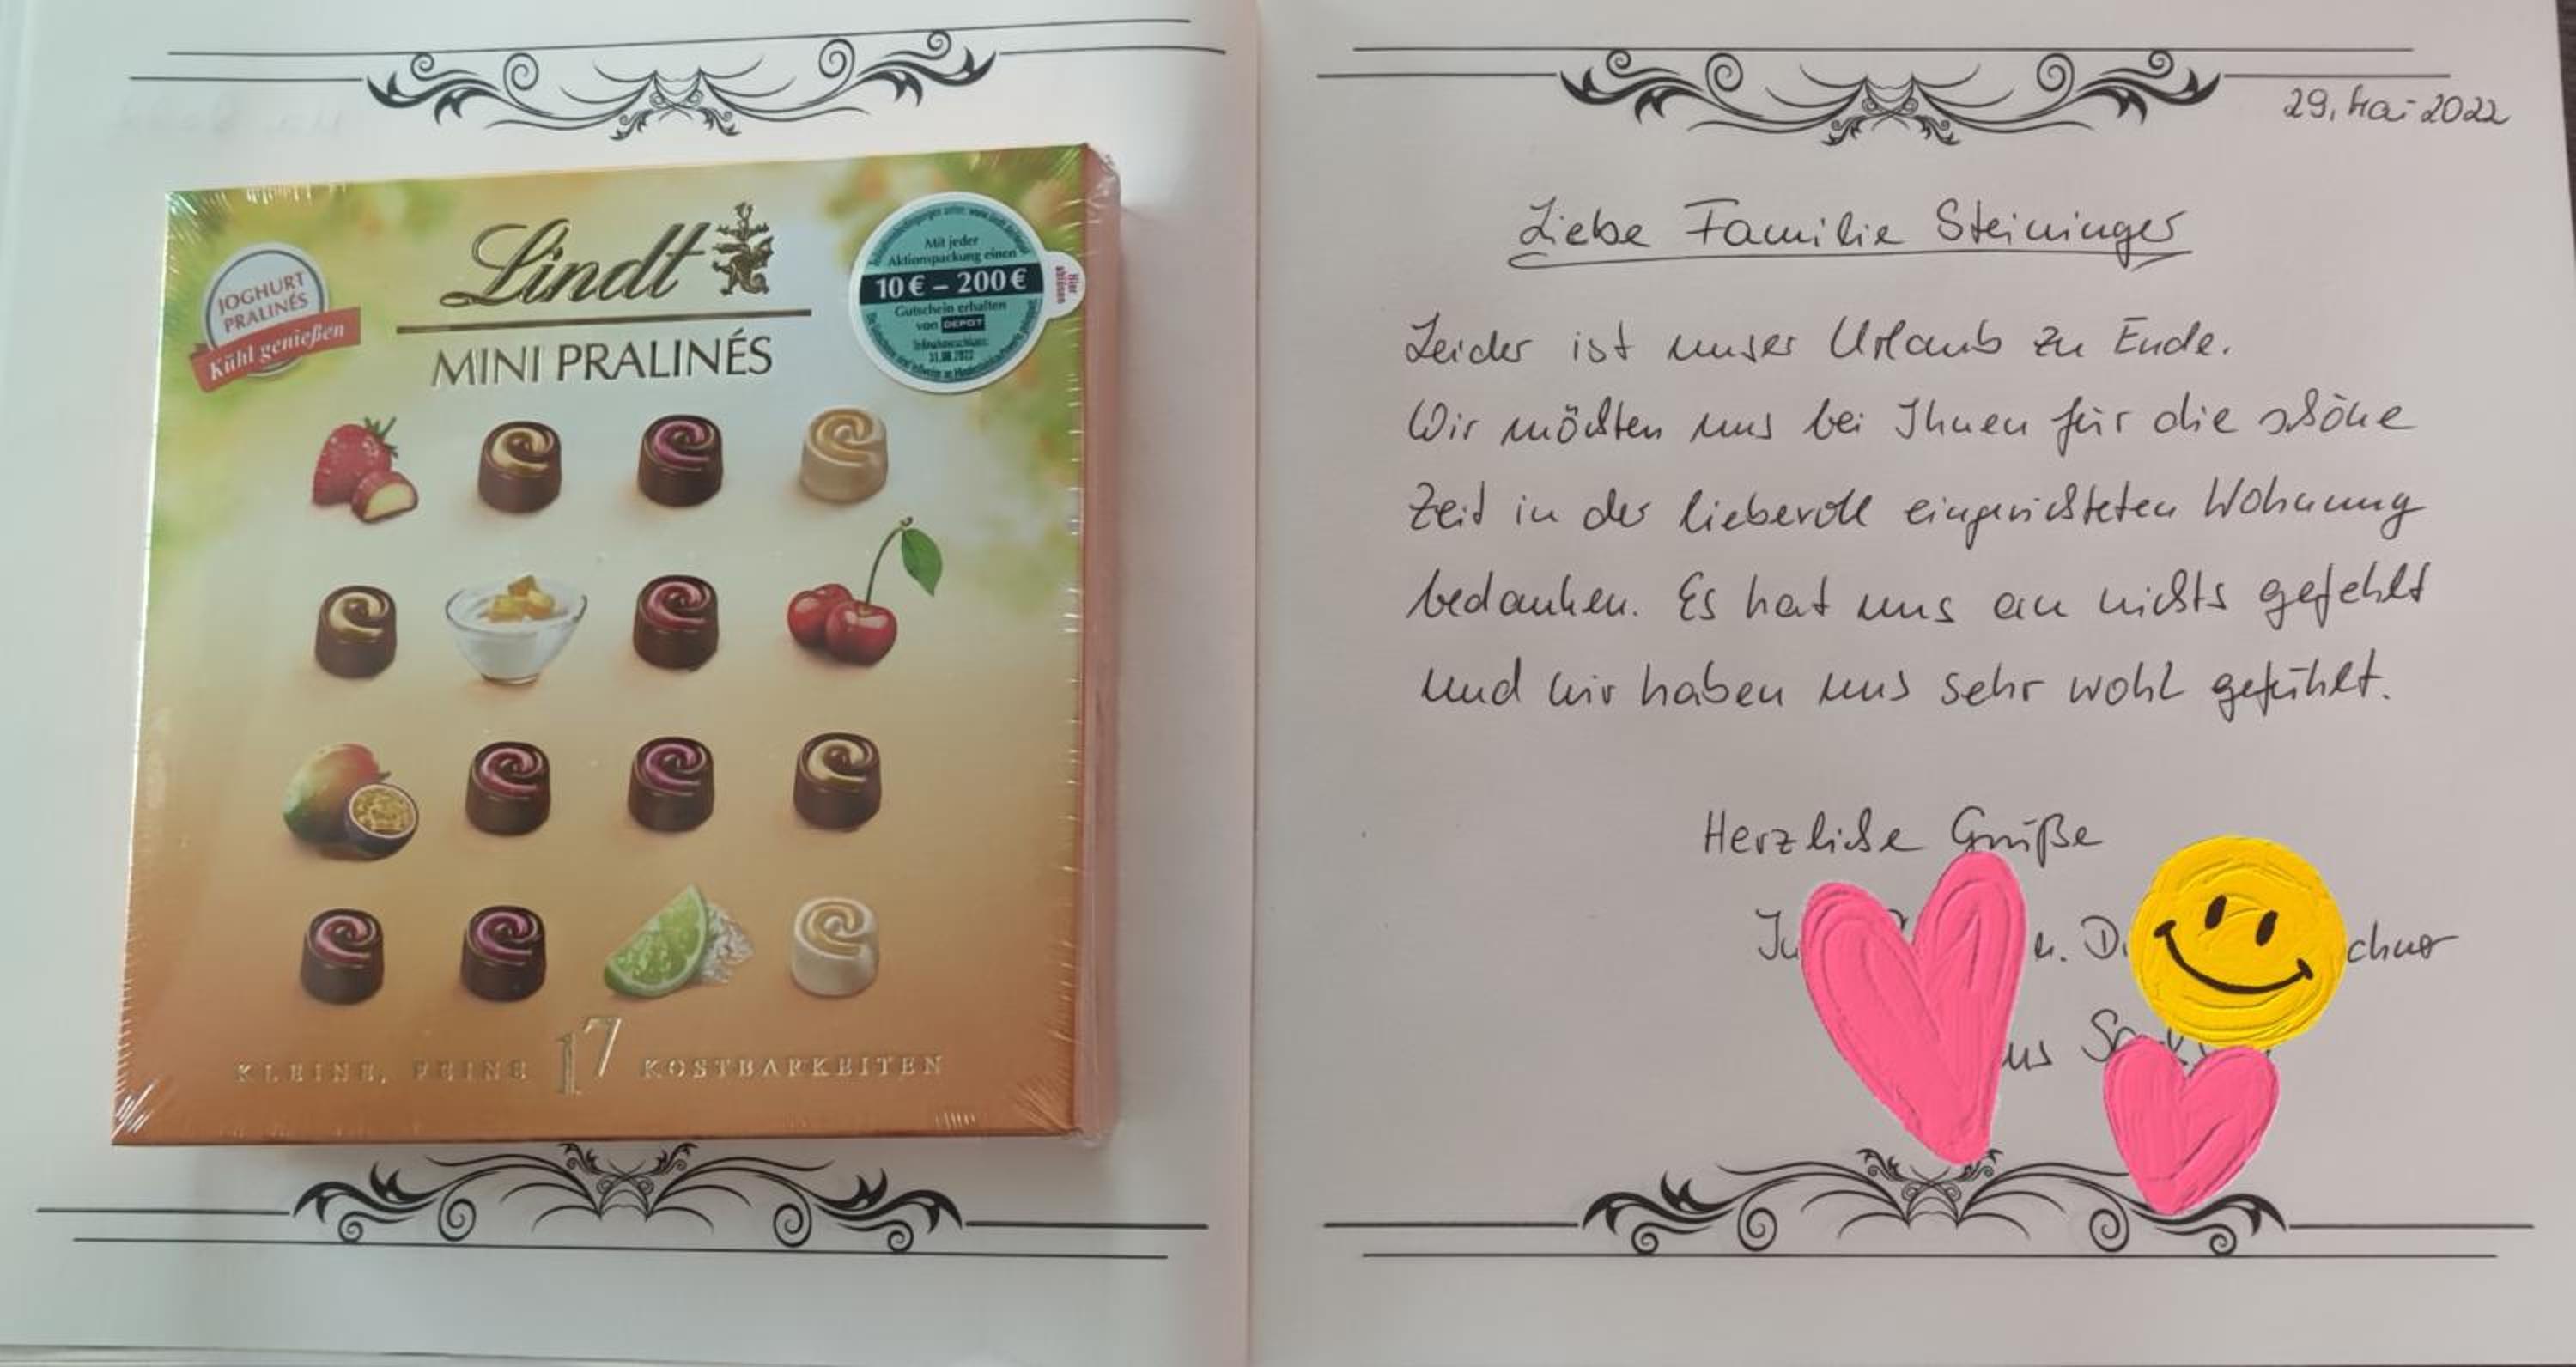 JOGHURT
PRALINÉS
Kühl genießen
Lindt
MINI PRALINÉS
Mit jeder
Aktionspackung einen
10 € – 200 €
Gutschein erhalten
von DEPOT
Teilnahmeschluss:
31.08.2022
Hier
ablösen
KLEINE, FEINE 17 KOSTBARKEITEN
29. Mai 2022
Liebe Familie Steininger
Leider ist unser Urlaub zu Ende.
Wir möchten uns bei Ihnen für die schöne
Zeit in der liebevoll eingerichteten Wohnung
bedanken. Es hat uns an nichts gefehlt
und wir haben uns sehr wohl gefühlt.
Herzliche Grüße
u. D.